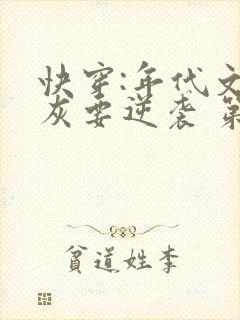 快穿:年代文
灰要逆袭 第
贫道姓李